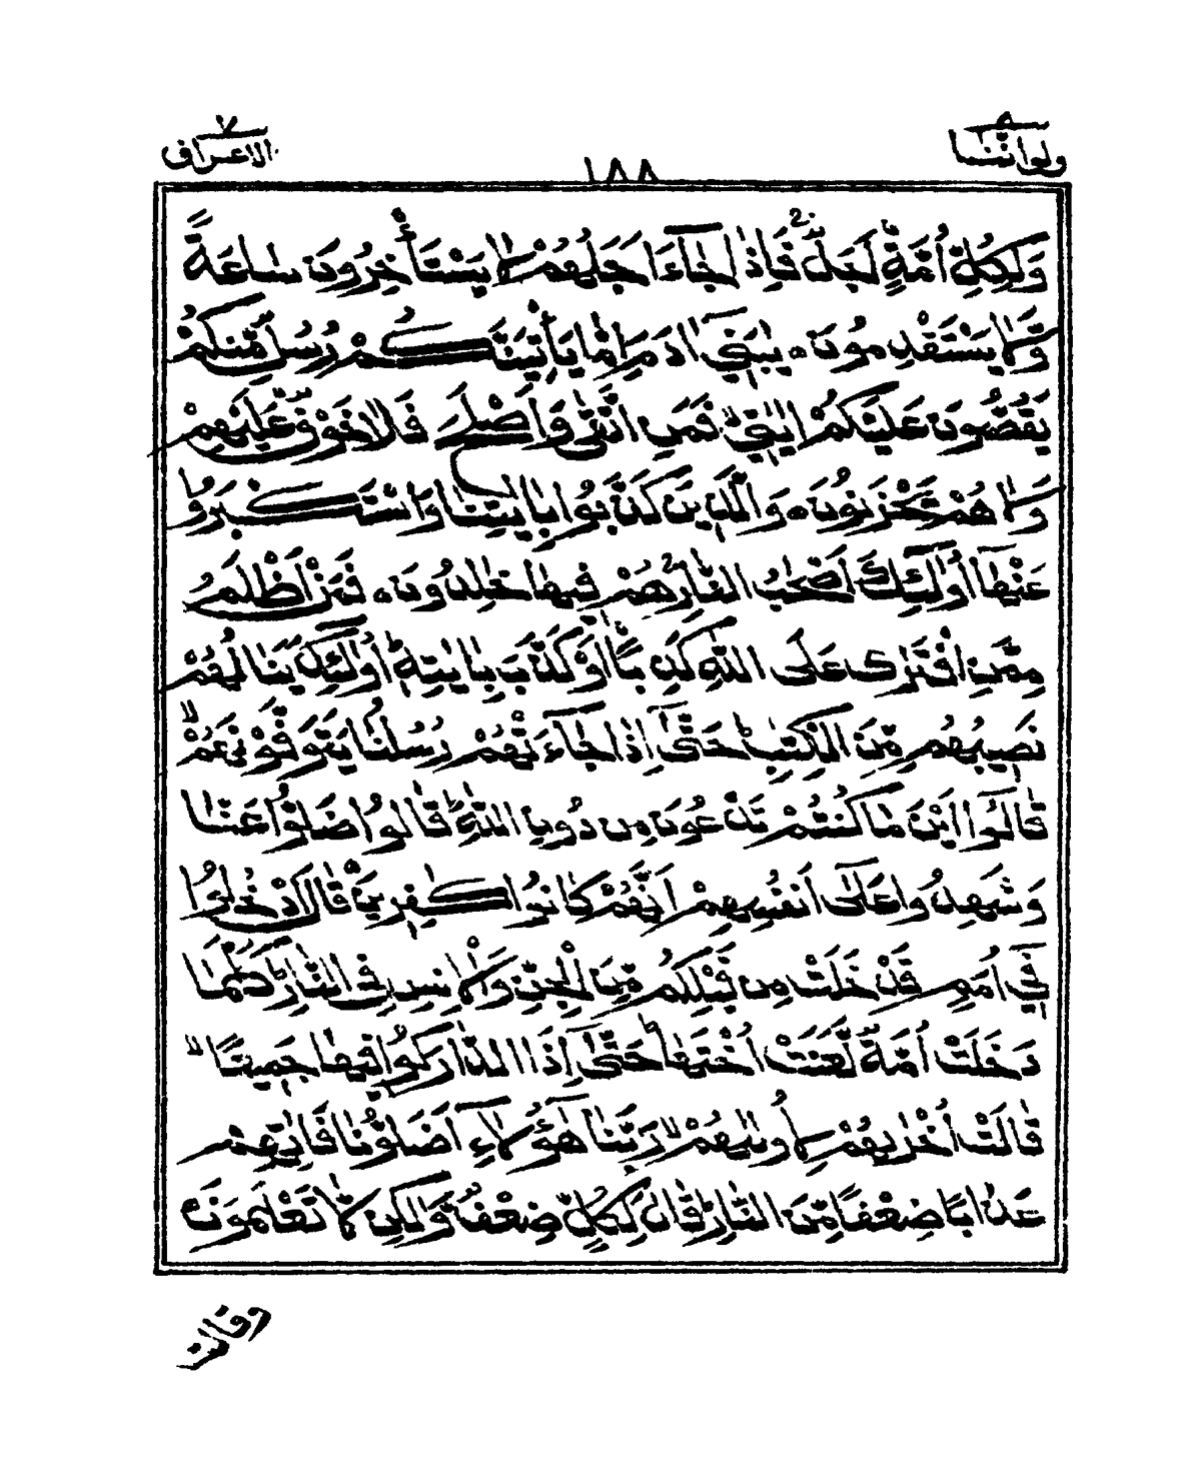 ولواننا ٨
١٨٨
الاعراف ٧
وَلِكُلِّ اُمَّةٍ اَجَلٌ ۚ فَاِذَا جَآءَ اَجَلُهُمْ لَا يَسْتَاْخِرُوْنَ سَاعَةً
وَّلَا يَسْتَقْدِمُوْنَ ۝ يٰبَنِيْٓ اٰدَمَ اِمَّا يَاْتِيَنَّكُمْ رُسُلٌ مِّنْكُمْ
يَقُصُّوْنَ عَلَيْكُمْ اٰيٰتِيْ ۙ فَمَنِ اتَّقٰى وَاَصْلَحَ فَلَا خَوْفٌ عَلَيْهِمْ
وَلَا هُمْ يَحْزَنُوْنَ ۝ وَالَّذِيْنَ كَذَّبُوْا بِاٰيٰتِنَا وَاسْتَكْبَرُوْا
عَنْهَآ اُولٰٓئِكَ اَصْحٰبُ النَّارِ ۚ هُمْ فِيْهَا خٰلِدُوْنَ ۝ فَمَنْ اَظْلَمُ
مِمَّنِ افْتَرٰى عَلَى اللّٰهِ كَذِبًا اَوْ كَذَّبَ بِاٰيٰتِهٖ ؕ اُولٰٓئِكَ يَنَالُهُمْ
نَصِيْبُهُمْ مِّنَ الْكِتٰبِ ؕ حَتّٰٓى اِذَا جَآءَتْهُمْ رُسُلُنَا يَتَوَفَّوْنَهُمْ ۙ
قَالُوْٓا اَيْنَ مَا كُنْتُمْ تَدْعُوْنَ مِنْ دُوْنِ اللّٰهِ ؕ قَالُوْا ضَلُّوْا عَنَّا
وَشَهِدُوْا عَلٰٓى اَنْفُسِهِمْ اَنَّهُمْ كَانُوْا كٰفِرِيْنَ ۝ قَالَ ادْخُلُوْا
فِيْٓ اُمَمٍ قَدْ خَلَتْ مِنْ قَبْلِكُمْ مِّنَ الْجِنِّ وَالْاِنْسِ فِى النَّارِ ؕ كُلَّمَا
دَخَلَتْ اُمَّةٌ لَّعَنَتْ اُخْتَهَا ؕ حَتّٰٓى اِذَا ادَّارَكُوْا فِيْهَا جَمِيْعًا ۙ
قَالَتْ اُخْرٰىهُمْ لِاُوْلٰىهُمْ رَبَّنَا هٰٓؤُلَآءِ اَضَلُّوْنَا فَاٰتِهِمْ
عَذَابًا ضِعْفًا مِّنَ النَّارِ ؕ قَالَ لِكُلٍّ ضِعْفٌ وَّلٰكِنْ لَّا تَعْلَمُوْنَ
وقالت